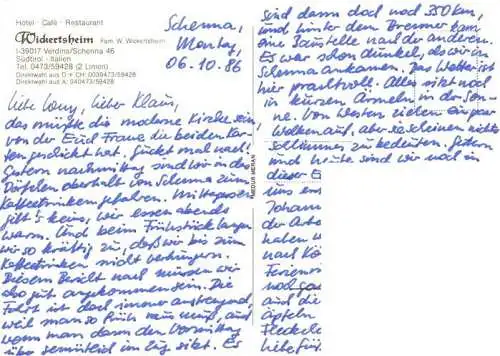 Hotel - Café - Restaurant
Wickertsheim Fam. W. Wickertsheim
I-39017 Verdins/Schenna 46
Südtirol - Italien
Tel. 0473/59428 (2 Linien)
Direktwahl aus D + CH: 0039473/59428
Direktwahl aus A: 040473/59428
Schenna,
Montag,
06.10.86
Liebe Lony, lieber Klaus,
das müßte die moderne Kirche sein,
von der Euch Franz die beiden Kar-
ten geschickt hat. Guckt mal nach!
Gestern nachmittag sind wir in das
Dörfchen oberhalb von Schenna zum
Kaffeetrinken gefahren. Mittagessen
gibt's keins, wir essen abends
warm. Und beim Frühstück langen
wir so kräftig zu, daß wir bis zum
Kaffeetrinken nicht verhungern.
Diesem Bericht nach müssen wir
also gut angekommen sein. Die
Fahrt ist doch immer anstrengend,
weil man so früh raus muß, und
wenn man dann den Vormittag
über gemütlich im Zug sitzt. Es
MEDUR MERAN
sind dann doch noch 350 km,
und hinter dem Brenner kam
eine Baustelle nach der anderen.
Es war schon dunkel, als wir in
Schenna ankamen. Das Wetter ist
hier prachtvoll. Alles sitzt noch
in kurzen Ärmeln in der Son-
ne. Von Westen ziehen ein paar
Wolken auf, aber sie scheinen nichts
Schlimmes zu bedeuten. Gestern
und heute sind wir noch in
dieser
uns
Johann
der
haben
nach
Ferien
noch
auf die
äpfeln
Fleckchen
Liebe Grü